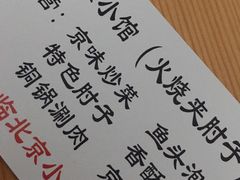 小馆（火烧夹肘子
营：京味炒菜
鱼头泡
特色肘子
香酥
铜锅涮肉
京
临北京小